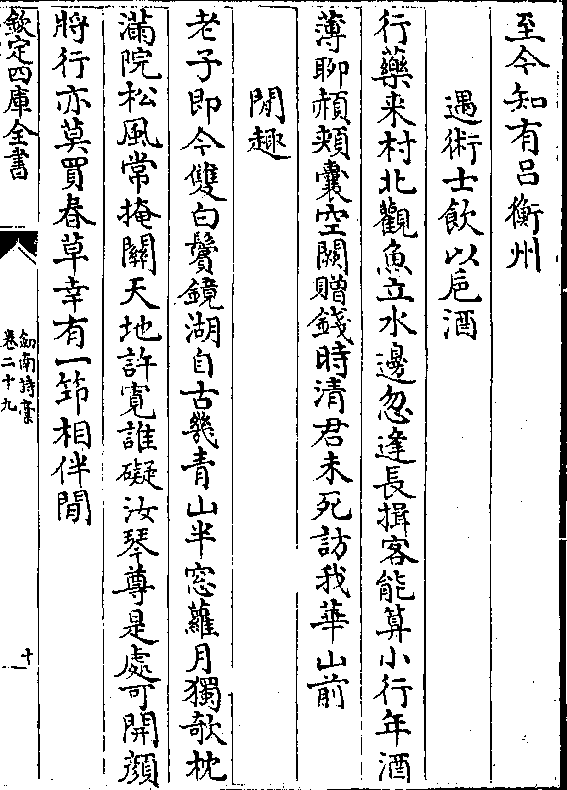 至今知有吕衡州
遇術士飲以卮酒
行藥来村北觀魚立水邊忽逢長揖客能算小行年酒
薄聊頳頰囊空闕贈錢時清君未死訪我華山前
閒趣
老子即今雙白鬢鏡湖自古幾青山半窓蘿月獨欹枕
滿院松風常掩關天地許寛誰礙汝琴尊是處可開顔
將行亦莫買春草幸有一笻相伴閒
欽定四庫全書
劍南詩藁
卷二十九
十